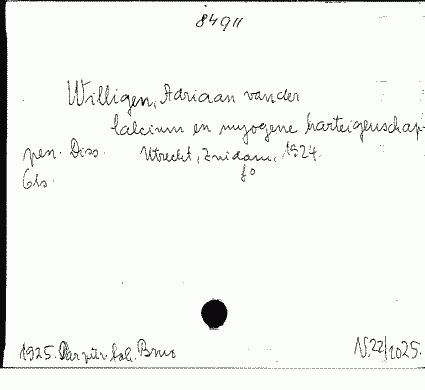 84911
Willigen, Adriaan van der
Calcium en myogene harteigenschap-
pen. Diss. Utrecht, Zuidam, 1924.
fo
1925. Brno N.22/2025.